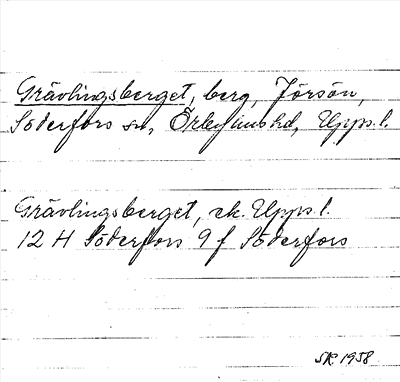 Grävlingsberget, berg, Jörsön,
Söderfors sn, Örbyhus hd, Upps. l.
Grävlingsberget, ek. Upps. l.
12 H Söderfors 9 f Söderfors
SR 1958